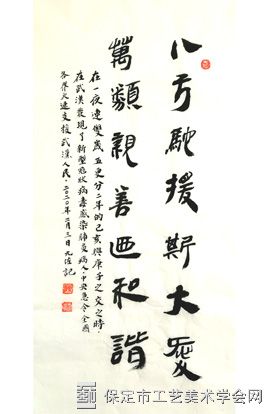 八方驰援斯大爱
萬類親善迺和諧
在一夜連雙歲五更分二年的已亥與庚子之交之時，
在武漢發現了新型冠狀病毒感染肺炎病人中央急令全國
各界火速支援武漢人民·二〇二〇年二月三日
保定市工艺美术学会网